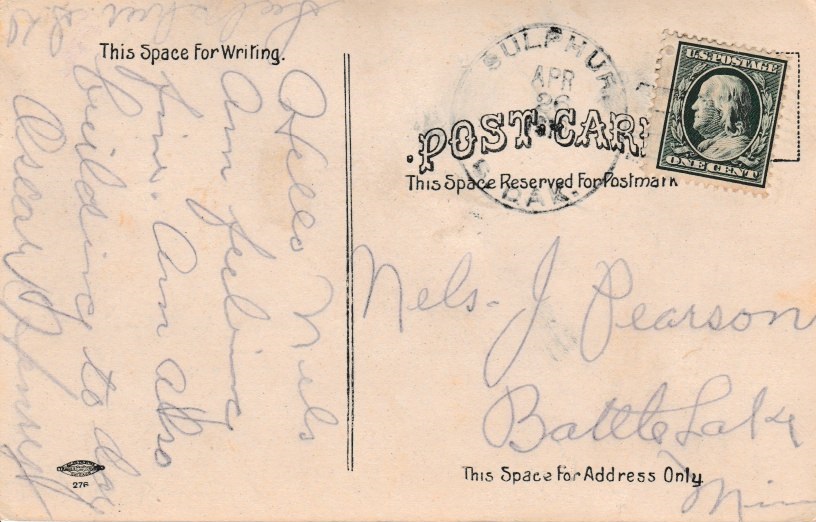 This Space For Writing.
Hello Nels
Am feeling
fine. Am also
building to day
Oscar
SULPHUR
APR
26
S. DAK.
U.S. POSTAGE
ONE CENT
POST CARD
This Space Reserved For Postmark
Nels. J Pearson
Battle Lake
Minn
This Space For Address Only.
276